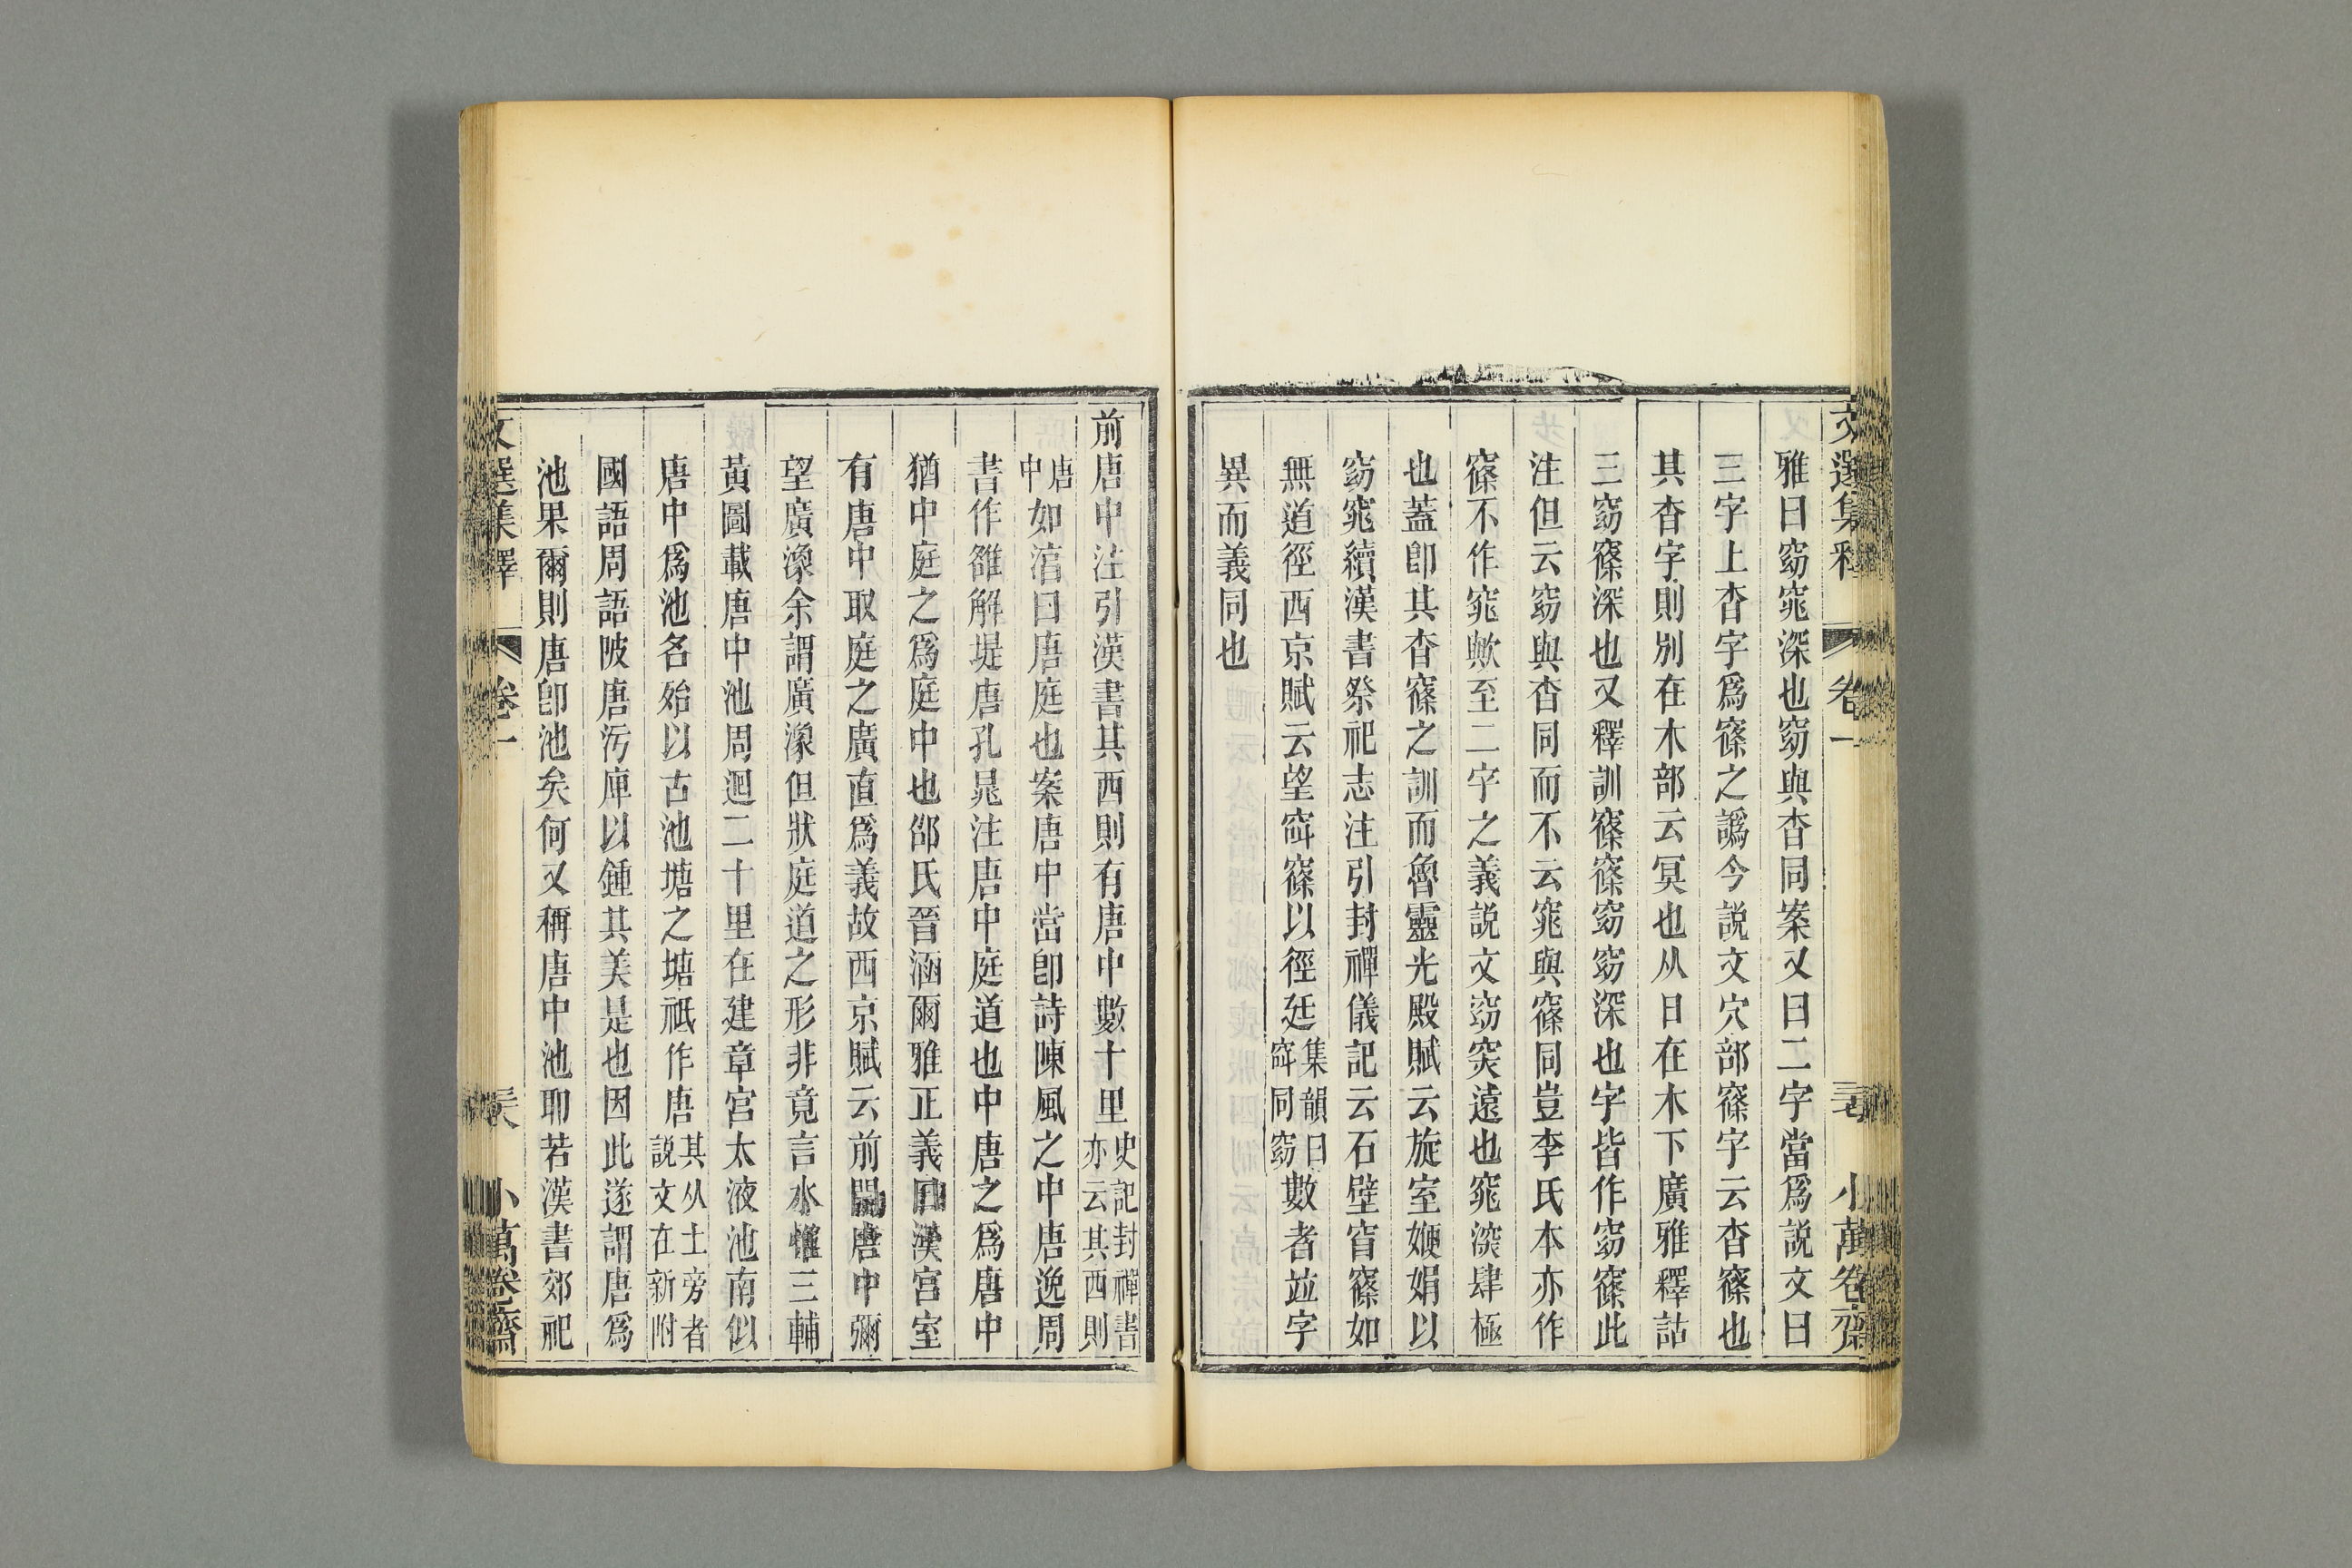 文選集釋 卷一 小萬卷齋
雅曰窈窕深也窈與杳同案又曰二字當爲說文曰
三字上杳字爲窱之譌今說文穴部窱字云杳窱也
其杳字則別在木部云冥也从日在木下廣雅釋詁
三窈窱深也又釋訓窱窱窈窈深也字皆作窈窱此
注但云窈與杳同而不云窕與窱同豈李氏本亦作
窱不作窕歟至二字之義說文窈窔遠也窕深肆極
也蓋卽其杳窱之訓而魯靈光殿賦云旋室㛹娟以
窈窕續漢書祭祀志注引封禪儀記云石壁窅窱如
無道徑西京賦云望㝔窱以徑廷集韻曰㝔同窈數者竝字
異而義同也
前唐中注引漢書其西則有唐中數十里史記封禪書亦云其西則
唐中如淳曰唐庭也案唐中當卽詩陳風之中唐逸周
書作雒解堤唐孔晁注唐中庭道也中唐之爲唐中
猶中庭之爲庭中也邵氏晉涵爾雅正義曰漢宮室
有唐中取庭之廣直爲義故西京賦云前開唐中彌
望廣潒余謂廣潒但狀庭道之形非竟言水惟三輔
黃圖載唐中池周迴二十里在建章宮太液池南似
唐中爲池名殆以古池塘之塘祇作唐其从土旁者說文在新附
國語周語陂唐汚庳以鍾其美是也因此遂謂唐爲
池果爾則唐卽池矣何又稱唐中池耶若漢書郊祀
文選集釋 卷一 小萬卷齋